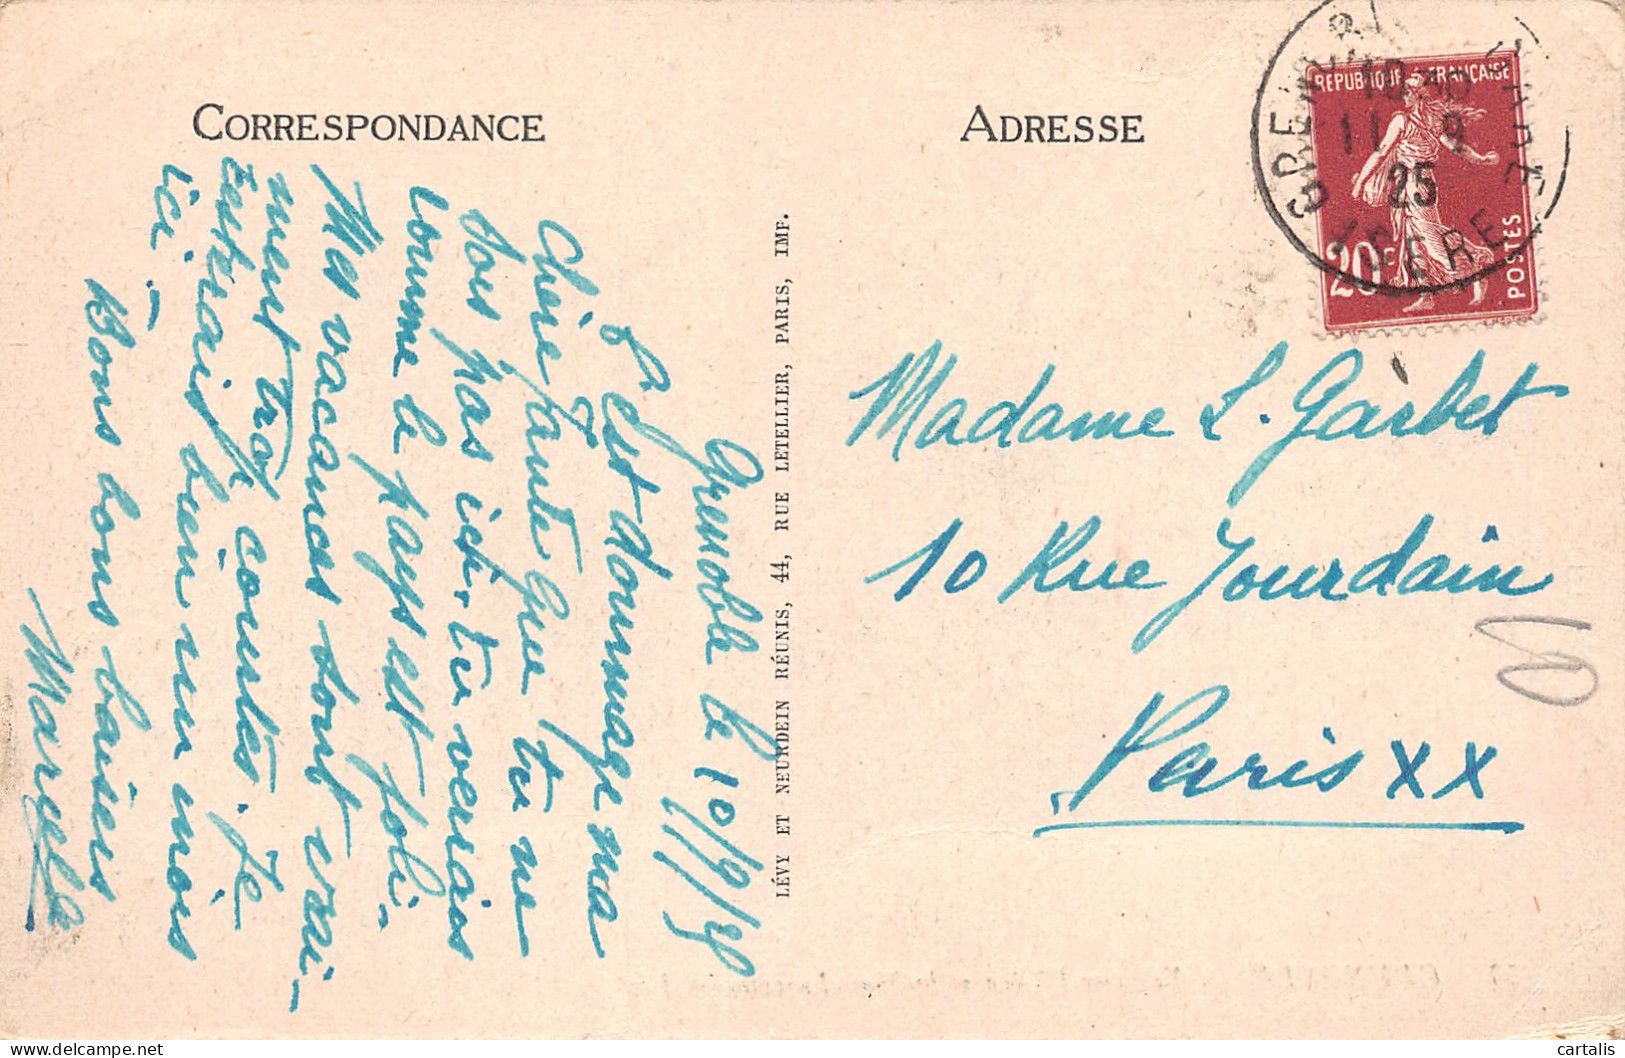 CORRESPONDANCE
Grenoble le 10/9/25
C'est dommage ma
chère tante que tu ne
sois pas ici. tu verrais
comme le pays est joli.
Mes vacances sont vrai-
ment trop courtes. Je
resterais bien un mois
ici.
Bons bons baisers
Marcelle
LÉVY ET NEURDEIN RÉUNIS, 44, RUE LETELLIER, PARIS, IMP.
ADRESSE
REPUBLIQUE FRANÇAISE
20c
POSTES
GRENOBLE
11 9
25
ISERE
Madame L. Garbet
10 Rue Jourdain
Paris XX
cartalis